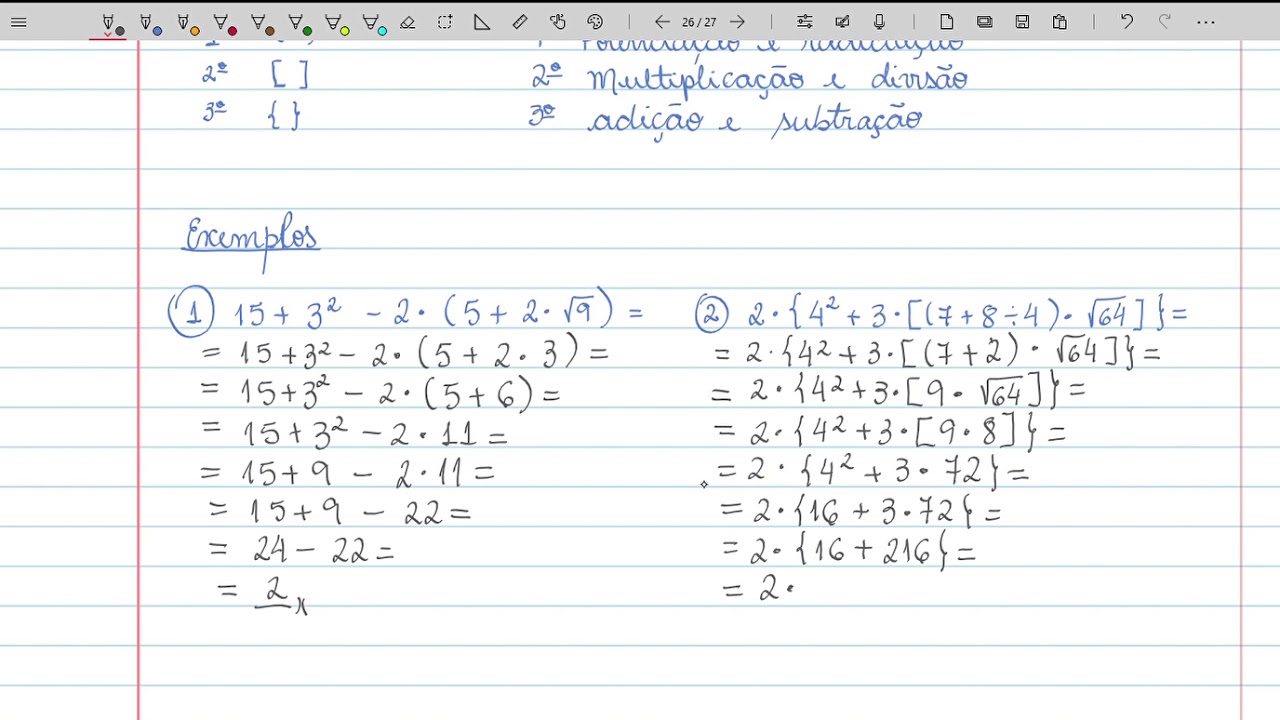 26 / 27
2º [ ] 2º Multiplicação e divisão
3º { } 3º adição e subtração
Exemplos
1 15 + 3² - 2 · (5 + 2 · √9) =
= 15 + 3² - 2 · (5 + 2 · 3) =
= 15 + 3² - 2 · (5 + 6) =
= 15 + 3² - 2 · 11 =
= 15 + 9 - 2 · 11 =
= 15 + 9 - 22 =
= 24 - 22 =
= 2
2 2 · {4² + 3 · [(7 + 8 ÷ 4) · √64]} =
= 2 · {4² + 3 · [(7 + 2) · √64]} =
= 2 · {4² + 3 · [9 · √64]} =
= 2 · {4² + 3 · [9 · 8]} =
= 2 · {4² + 3 · 72} =
= 2 · {16 + 3 · 72} =
= 2 · {16 + 216} =
= 2 ·